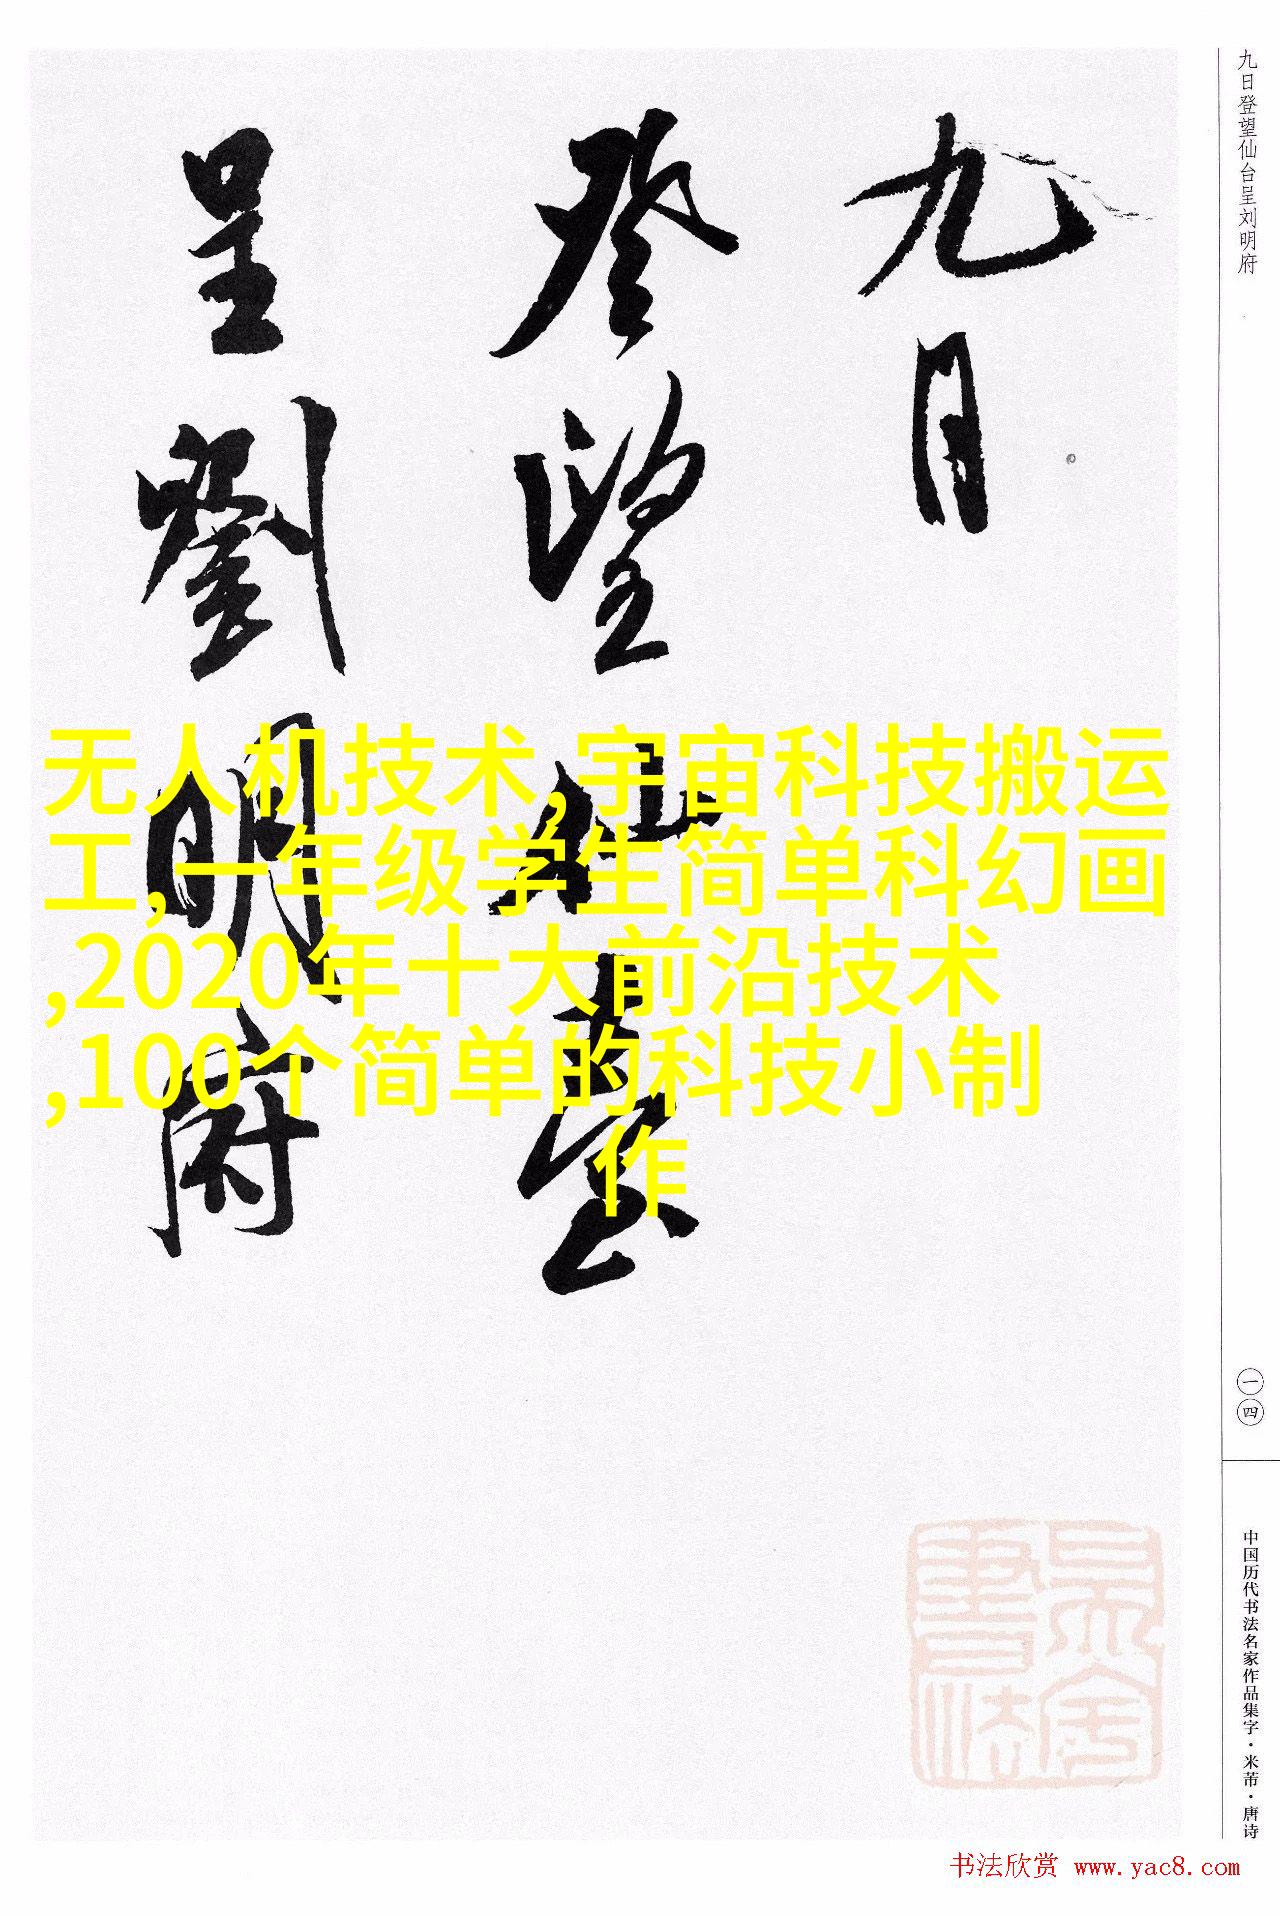 九日登望仙台呈刘明府
九日
登望仙臺
呈劉明府
无人机技术,宇宙科技搬运
工,一年级学生简单科幻画
,2020年十大前沿技术
,100个简单的科技小制
作
一四
中国历代书法名家作品集字·米芾·唐诗
书法欣赏 www.yac8.com